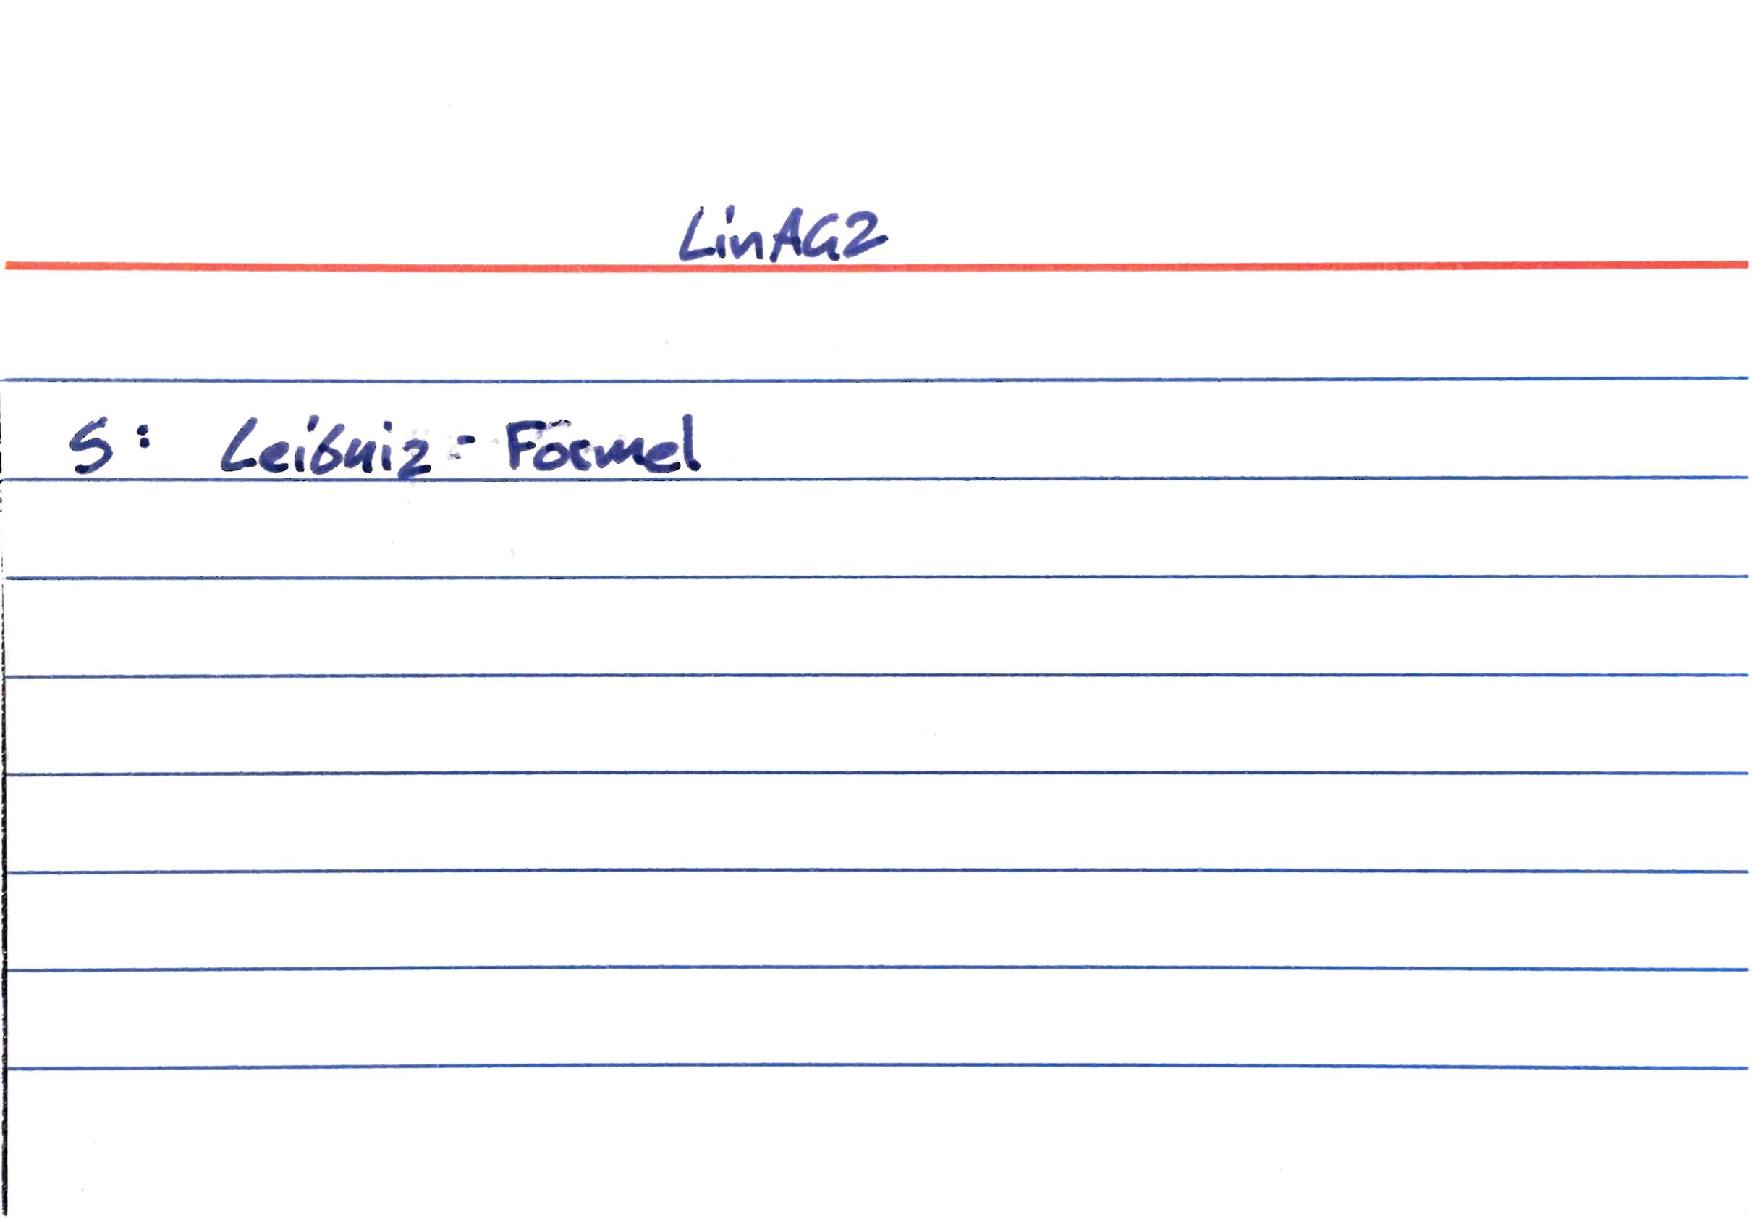 LinAG2
S: Leibniz-Formel